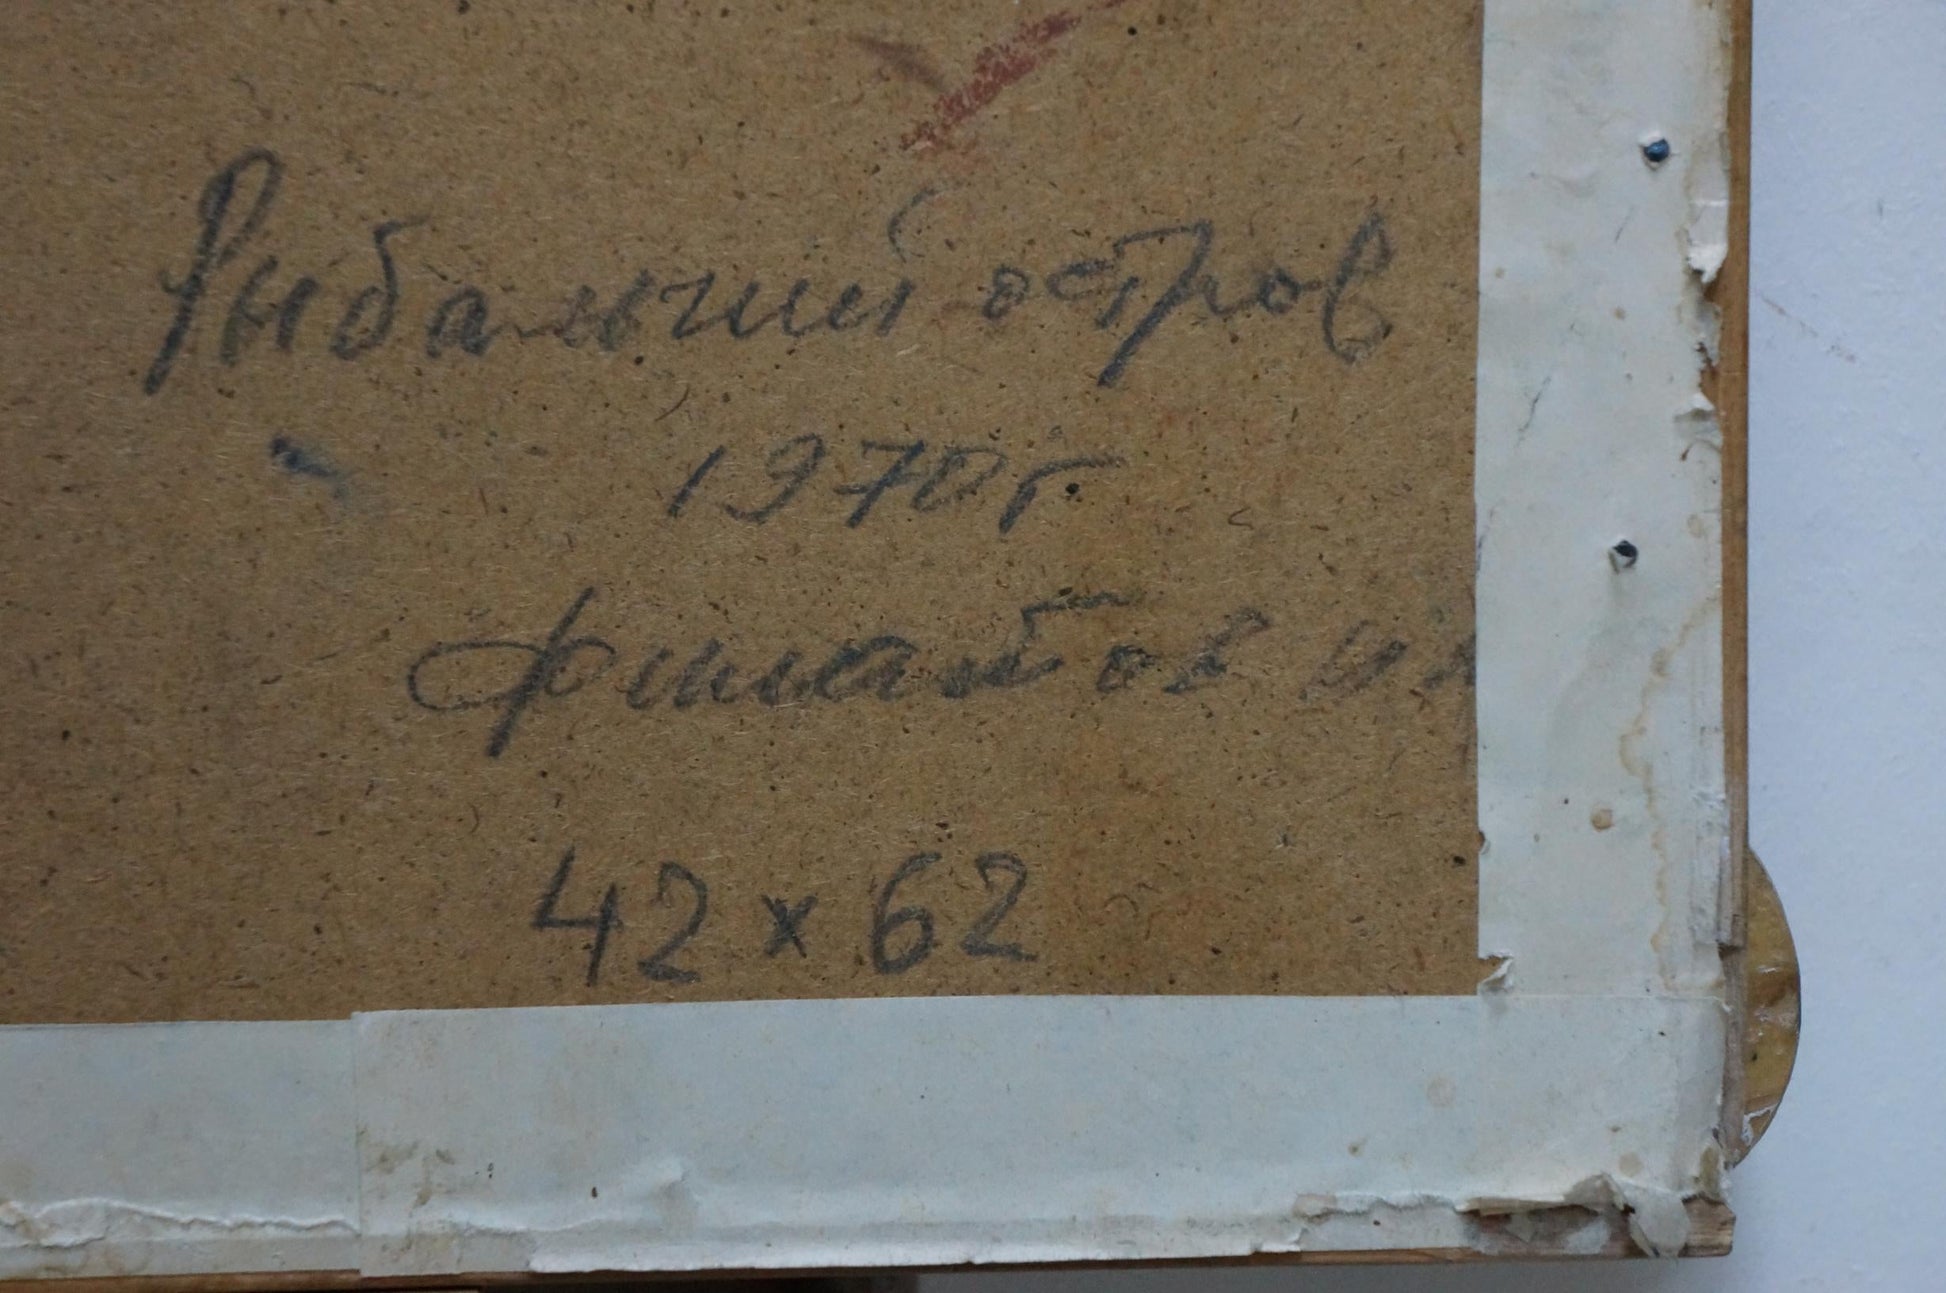 Рыбальчий остров
1970 г.
Филатов И Н
42 х 62